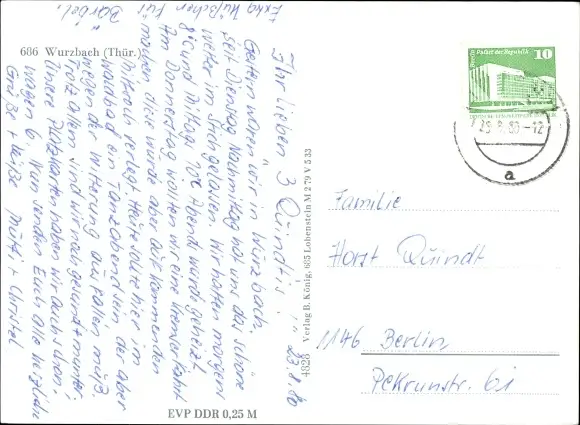 686 Wurzbach (Thür.)
Ihr lieben 3 Quindt's!
23.8.80
Gestern waren wir in Wurzbach,
seit Dienstag Nachmittag hat uns das schöne
Wetter im Stich gelassen. Wir hatten morgens
9° und Mittags 10°C Abend wurde geheizt.
Am Donnerstag wollten wir eine Kremserfahrt
machen diese wurde aber auf kommenden
Mittwoch verlegt. Heute sollte hier im
Waldbad ein Tanzabend sein, der aber
wegen der Witterung ausfallen muß.
Trotz allem sind wir noch gesund + munter.
Unsere Platzkarten haben wir auch schon.
Wagen 6. Nun senden Euch alle herzliche
Grüße + Küße Mutti + Christel
Extra Küßchen für
Bärbel.
EVP DDR 0,25 M
4828 Verlag B. König, 685 Lobenstein M 2 79 V 5 33
Berlin Palast der Republik
10
DEUTSCHE DEMOKRATISCHE REPUBLIK
25.8.80-12
a
Familie
Horst Quindt
1146 Berlin
Pekrunstr. 61